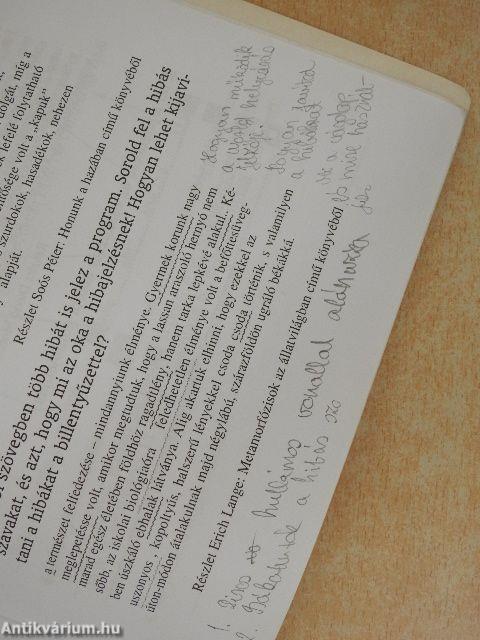 dolgát, míg a
lefelé folyatható
ítőssége volt a „kapuk”
szurdokok, hasadékok, nehezen
alapját.
Részlet Soós Péter: Honunk a hazában című könyvéből
szövegben több hibát is jelez a program. Sorold fel a hibás
szavakat, és azt, hogy mi az oka a hibajelzésnek! Hogyan lehet kijaví-
tani a hibákat a billentyűzettel?
a természet felfedezése – mindannyiunk élménye. Gyermek korunk nagy
meglepetésse volt, amikor megtudtuk, hogy a lassan araszoló hernyó nem
marad egész életében földhöz ragadtlény, hanem tarka lepkévé alakul.. Ké-
sőbb, az iskolai biológiaóra feledhetetlen élménye volt a befőttesüveg-
ben úszkáló ebhalak látványa. Alig akartuk elhinni, hogy ezekkel az
uszonyos , kopoltyús, halszerű lényekkel csoda csoda történik, s valamilyen
úton-módon átalakulnak majd négylábú, szárazföldön ugráló békákká.
Részlet Erich Lange: Metamorfózisok az állatvilágban című könyvéből
Hogyan működik
a helyesírás
Hogyan javítod
a hibákat
1. Piros hullámos vonallal aláhúzva
2. a hibás szó
Antikvárium.hu
Antikvárium.hu